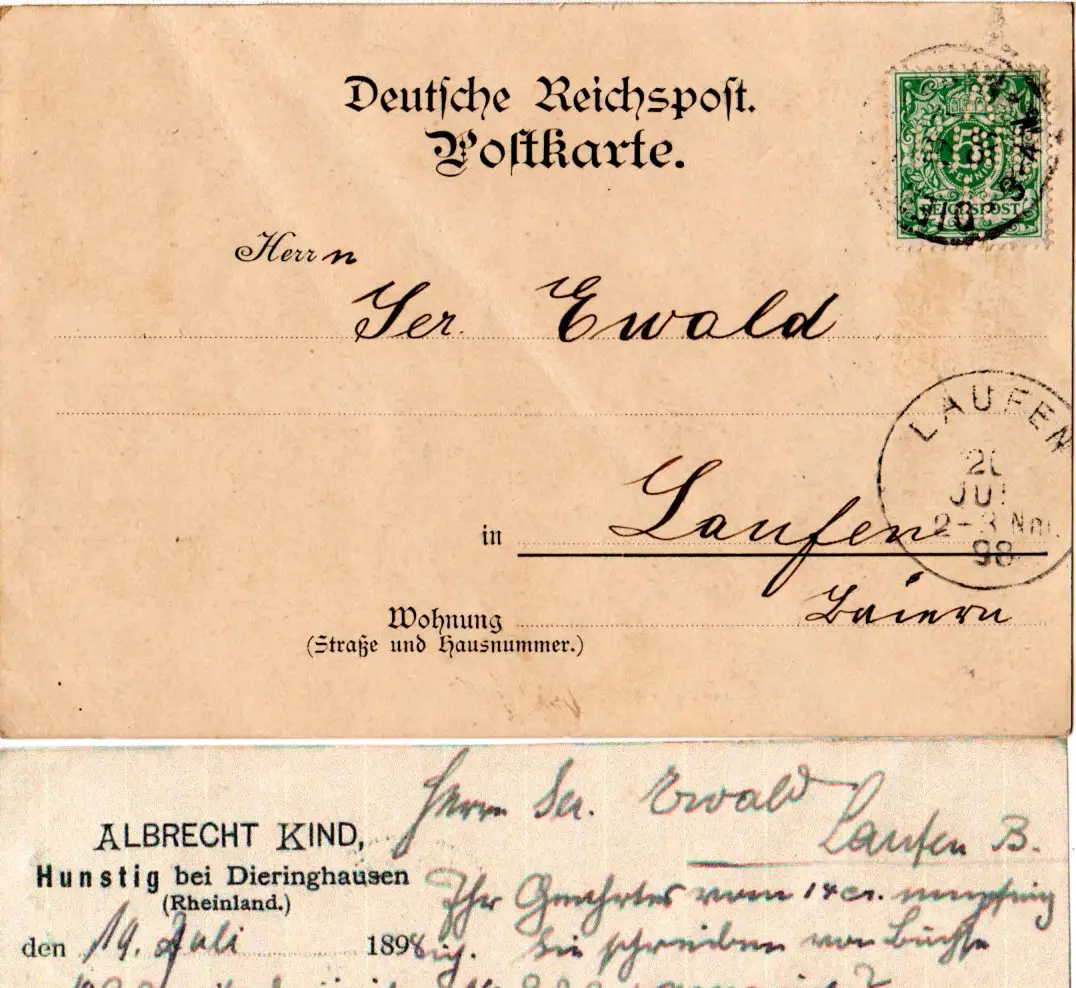 Deutsche Reichspost.
Postkarte.
REICHSPOST
Herrn
Ser. Ewald
LAUFEN
JU
2-3 Nm.
98
in Laufen
Baiern
Wohnung
(Straße und Hausnummer.)
Herrn Ser. Ewald
Laufen B.
ALBRECHT KIND,
Hunstig bei Dieringhausen
(Rheinland.)
den 19. Juli 1898
Ihr Geehrtes vom 14 cr. empfing
ich. Sie schreiben von Büchse